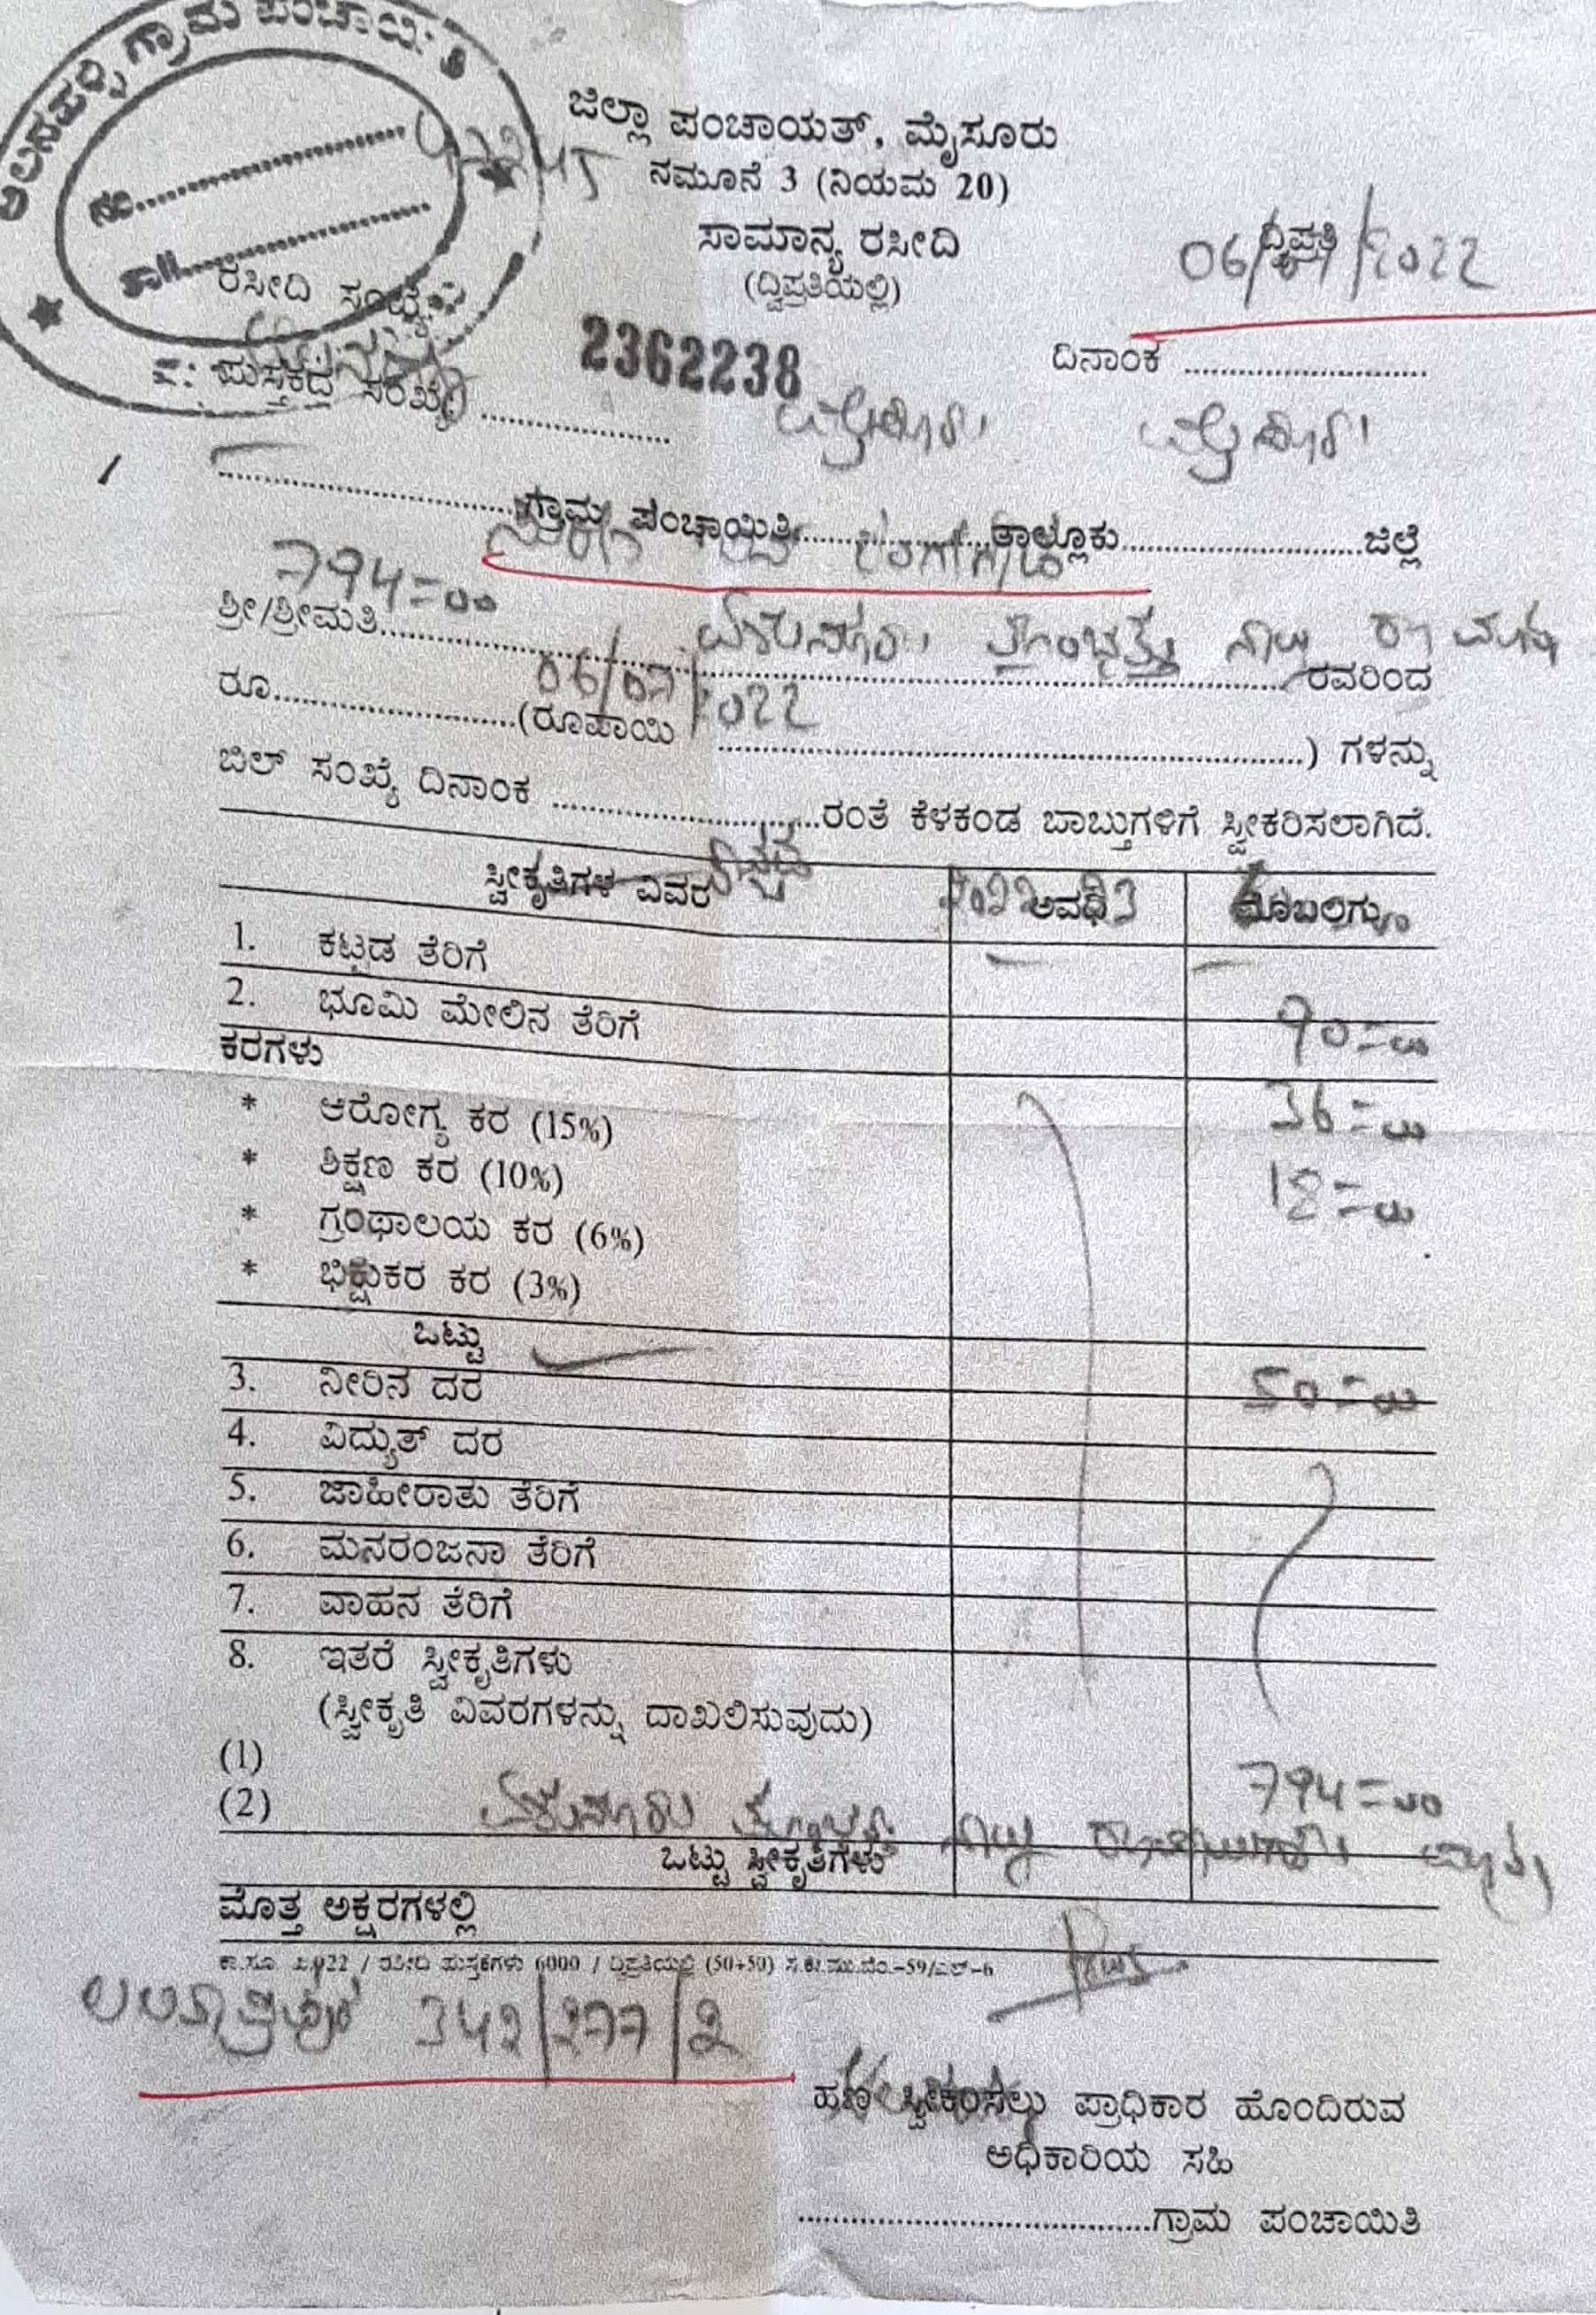 ಗ್ರಾಮ ಪಂಚಾಯಿತಿ
ನಂ.
ತಾ||.
ಜಿಲ್ಲಾ ಪಂಚಾಯತ್, ಮೈಸೂರು
ನಮೂನೆ 3 (ನಿಯಮ 20)
ಸಾಮಾನ್ಯ ರಸೀದಿ
(ದ್ವಿಪ್ರತಿಯಲ್ಲಿ)
ದ್ವಿಪ್ರತಿ
06/07/2022
ರಸೀದಿ ಸಂಖ್ಯೆ
2362238
ದಿನಾಂಕ
ಪುಸ್ತಕದ ಸಂಖ್ಯೆ
ಮೈಸೂರು ಮೈಸೂರು
ಗ್ರಾಮ ಪಂಚಾಯಿತಿ ತಾಲ್ಲೂಕು ಜಿಲ್ಲೆ
794=00
ಶ್ರೀ/ಶ್ರೀಮತಿ ರವರಿಂದ
ಏಳುನೂರು ತೊಂಭತ್ತು ನಾಲ್ಕು
06/07/2022
ರೂ. (ರೂಪಾಯಿ ) ಗಳನ್ನು
ಬಿಲ್ ಸಂಖ್ಯೆ ದಿನಾಂಕ ರಂತೆ ಕೆಳಕಂಡ ಬಾಬ್ತುಗಳಿಗೆ ಸ್ವೀಕರಿಸಲಾಗಿದೆ.
ಸ್ವೀಕೃತಿಗಳ ವಿವರ ಅವಧಿ ಮೊಬಲಗು
1. ಕಟ್ಟಡ ತೆರಿಗೆ
2. ಭೂಮಿ ಮೇಲಿನ ತೆರಿಗೆ 90=00
ಕರಗಳು
* ಆರೋಗ್ಯ ಕರ (15%) 36=00
* ಶಿಕ್ಷಣ ಕರ (10%) 18=00
* ಗ್ರಂಥಾಲಯ ಕರ (6%)
* ಭಿಕ್ಷುಕರ ಕರ (3%)
ಒಟ್ಟು
3. ನೀರಿನ ದರ 50=00
4. ವಿದ್ಯುತ್ ದರ
5. ಜಾಹೀರಾತು ತೆರಿಗೆ
6. ಮನರಂಜನಾ ತೆರಿಗೆ
7. ವಾಹನ ತೆರಿಗೆ
8. ಇತರೆ ಸ್ವೀಕೃತಿಗಳು
(ಸ್ವೀಕೃತಿ ವಿವರಗಳನ್ನು ದಾಖಲಿಸುವುದು)
(1)
(2) 794=00
ಏಳುನೂರು ತೊಂಭತ್ತು ನಾಲ್ಕು ರೂಪಾಯಿಗಳು ಮಾತ್ರ
ಒಟ್ಟು ಸ್ವೀಕೃತಿಗಳು
ಮೊತ್ತ ಅಕ್ಷರಗಳಲ್ಲಿ
/ ರಸೀದಿ ಪುಸ್ತಕಗಳು 6000 / ದ್ವಿಪ್ರತಿಯಲ್ಲಿ (50+50)
342/277/2
ಹಣ ಸ್ವೀಕರಿಸಲು ಪ್ರಾಧಿಕಾರ ಹೊಂದಿರುವ
ಅಧಿಕಾರಿಯ ಸಹಿ
ಗ್ರಾಮ ಪಂಚಾಯಿತಿ